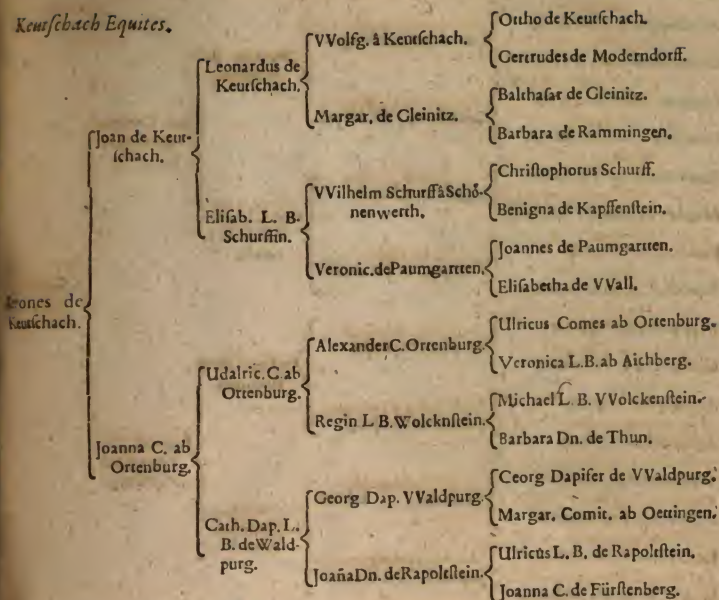 Keutſchach Equites.
de
Keutſchach.
Joan de Keut-
ſchach.
Joanna C. ab
Ortenburg.
Leonardus de
Keutſchach.
Eliſab. L. B.
Schurffin.
Udalric. C ab
Ortenburg.
Cath. Dap. L.
B. de Wald-
purg.
VVolfg. â Kentſchach.
Margar. de Gleinitz.
VVilhelm Schurff â Schö-
nenwerth.
Veronic. de Paumgartten.
Alexander C. Ortenburg.
Regin L B. Wolcknſtein.
Georg Dap. VValdpurg.
Joaña Dn. de Rapoltſtein.
Ottho de Keutſchach.
Gertrudes de Moderndorff.
Balthaſar de Gleinitz.
Barbara de Rammingen.
Chriſtophorus Schurff.
Benigna de Kapffenſtein.
Joannes de Paumgartten.
Eliſabetha de VVall.
Ulricus Comes ab Ortenburg.
Veronica L. B. ab Aichberg.
Michael L. B. VVolckenſtein.
Barbara Dn. de Thun.
Georg Dapifer de VValdpurg.
Margar. Comit. ab Oettingen.
Ulricus L. B. de Rapoltſtein.
Joanna C. de Fürſtenberg.